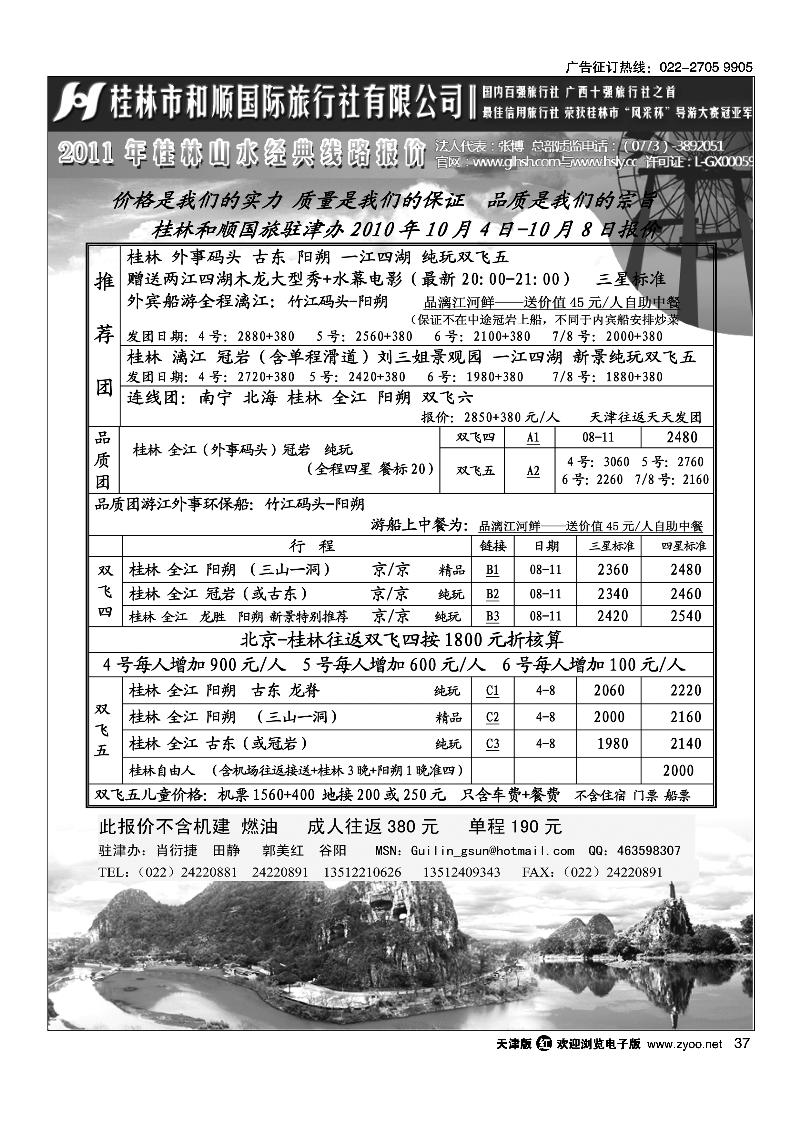 广告征订热线：022-2705 9905
桂林市和顺国际旅行社有限公司
国内百强旅行社 广西十强旅行社之首
最佳信用旅行社 荣获桂林市“风采杯”导游大赛冠亚军
2011 年桂林山水经典线路报价
法人代表：张博 总部质监电话：（0773）-3892051
官网：www.glhsh.com与www.hsly.cc 许可证：L-GX00059
价格是我们的实力 质量是我们的保证 品质是我们的宗旨
桂林和顺国旅驻津办2010年10月4日-10月8日报价
推荐团
桂林 外事码头 古东 阳朔 一江四湖 纯玩双飞五
赠送两江四湖木龙大型秀+水幕电影（最新20:00-21:00） 三星标准
外宾船游全程漓江：竹江码头-阳朔 品漓江河鲜——送价值45元/人自助中餐
（保证不在中途冠岩上船，不同于内宾船安排炒菜
发团日期：4号：2880+380 5号：2560+380 6号：2100+380 7/8号：2000+380
桂林 漓江 冠岩（含单程滑道）刘三姐景观园 一江四湖 新景纯玩双飞五
发团日期：4号：2720+380 5号：2420+380 6号：1980+380 7/8号：1880+380
连线团：南宁 北海 桂林 全江 阳朔 双飞六
报价：2850+380元/人 天津往返天天发团
品质团
桂林 全江（外事码头）冠岩 纯玩
（全程四星 餐标20）
双飞四 A1 08-11 2480
双飞五 A2 4号：3060 5号：2760
6号：2260 7/8号：2160
品质团游江外事环保船：竹江码头-阳朔
游船上中餐为：品漓江河鲜——送价值45元/人自助中餐
行 程 链接 日期 三星标准 四星标准
双飞四
桂林 全江 阳朔 （三山一洞） 京/京 精品 B1 08-11 2360 2480
桂林 全江 冠岩（或古东） 京/京 纯玩 B2 08-11 2340 2460
桂林 全江 龙胜 阳朔 新景特别推荐 京/京 纯玩 B3 08-11 2420 2540
北京-桂林往返双飞四按1800元折核算
4号每人增加900元/人 5号每人增加600元/人 6号每人增加100元/人
双飞五
桂林 全江 阳朔 古东 龙脊 纯玩 C1 4-8 2060 2220
桂林 全江 阳朔 （三山一洞） 精品 C2 4-8 2000 2160
桂林 全江 古东（或冠岩） 纯玩 C3 4-8 1980 2140
桂林自由人 （含机场往返接送+桂林3晚+阳朔1晚准四） 2000
双飞五儿童价格：机票1560+400 地接200或250元 只含车费+餐费 不含住宿 门票 船票
此报价不含机建 燃油 成人往返380元 单程190元
驻津办：肖衍捷 田静 郭美红 谷阳 MSN：Guilin_gsun@hotmail.com QQ：463598307
TEL：（022）24220881 24220891 13512210626 13512409343 FAX：（022）24220891
天津版 红 欢迎浏览电子版 www.zyoo.net 37